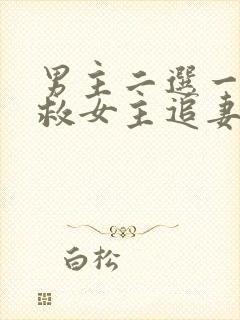 男主二選一
救女主追妻
白松